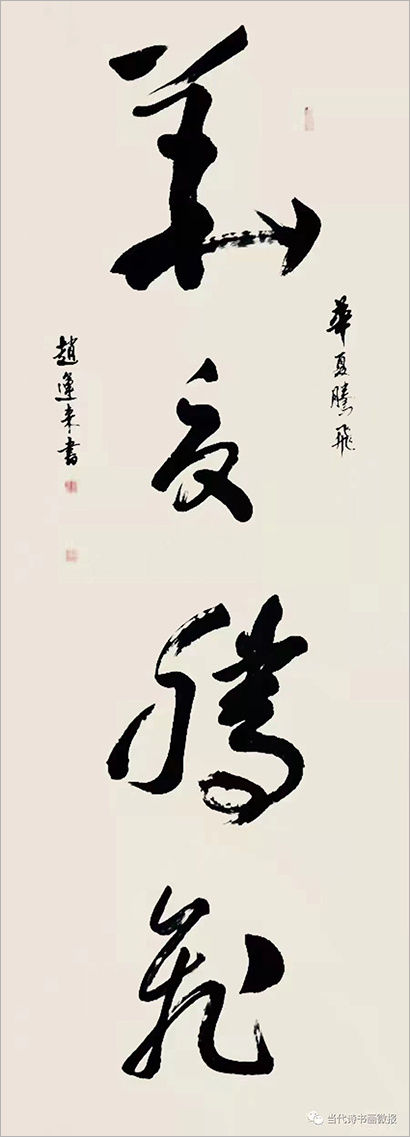 華夏騰飛
華夏騰飛
趙運来書
当代诗书画微报